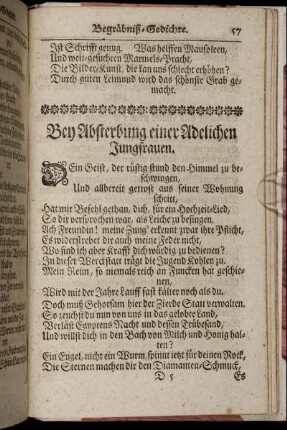 Begräbniß-Gedichte. 57
Ist Schrifft genug. Was helffen Mausoleen,
Und weit-gesuchten Marmels-Pracht,
Die Bilder-Kunst, die kan uns schlecht erhöhen?
Durch guten Leimund wird das schönste Grab ge-
macht.
Bey Absterbung einer Adelichen
Jungfrauen.
DEin Geist, der rüstig stund den Himmel zu be-
schwingen,
Und allbereit getrost aus seiner Wohnung
schritt,
Hat mir Befehl gethan, dich, für ein Hochzeit-Lied,
So dir versprochen war, als Leiche zu besingen.
Ach Freundin! meine Zung' erkennt zwar ihre Pflicht,
Es widerstrebet dir auch meine Feder nicht,
Wo sind ich aber Krafft dich würdig zu bedienen?
In dieser Werckstatt trägt die Jugend Kohlen zu.
Mein Reim, so niemals reich an Funcken hat geschie-
nen,
Wird mit der Jahre Lauff fast kälter noch als du.
Doch muß Gehorsam hier der Zierde Statt verwalten.
So zeuchst du nun von uns in das gelobte Land,
Verläst Egyptens Nacht und dessen Trübesand,
Und willst dich in den Bach von Milch und Honig hal-
ten?
Ein Engel, nicht ein Wurm, spinnt jetzt für deinen Rock,
Die Sternen machen dir den Diamanten-Schmuck,
D 5 Es